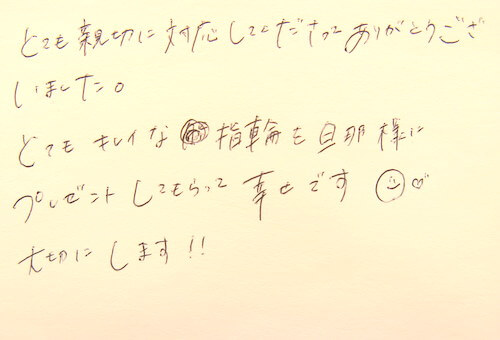 とても親切に対応してくださってありがとうござ
いました。
とてもキレイな指輪を旦那様に
プレゼントしてもらって幸せです
大切にします!!